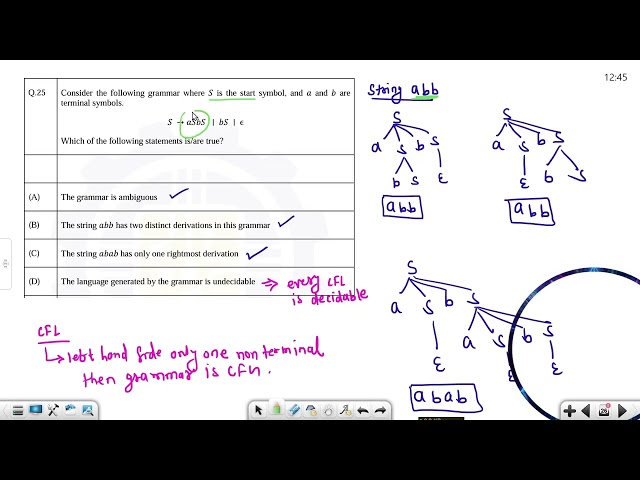 12:45
Q.25 Consider the following grammar where S is the start symbol, and a and b are
terminal symbols.
S → aSbS | bS | ϵ
Which of the following statements is/are true?
(A) The grammar is ambiguous
(B) The string abb has two distinct derivations in this grammar
(C) The string abab has only one rightmost derivation
(D) The language generated by the grammar is undecidable ⇒ every CFL
is decidable
CFL
↳ left hand side only one non terminal
then grammar is CFG.
String abb
S
a S b S
b S ε
abb
S
a S b S
ε b S
abb
S
a S b S
ε a S b S
ε ε
abab
28